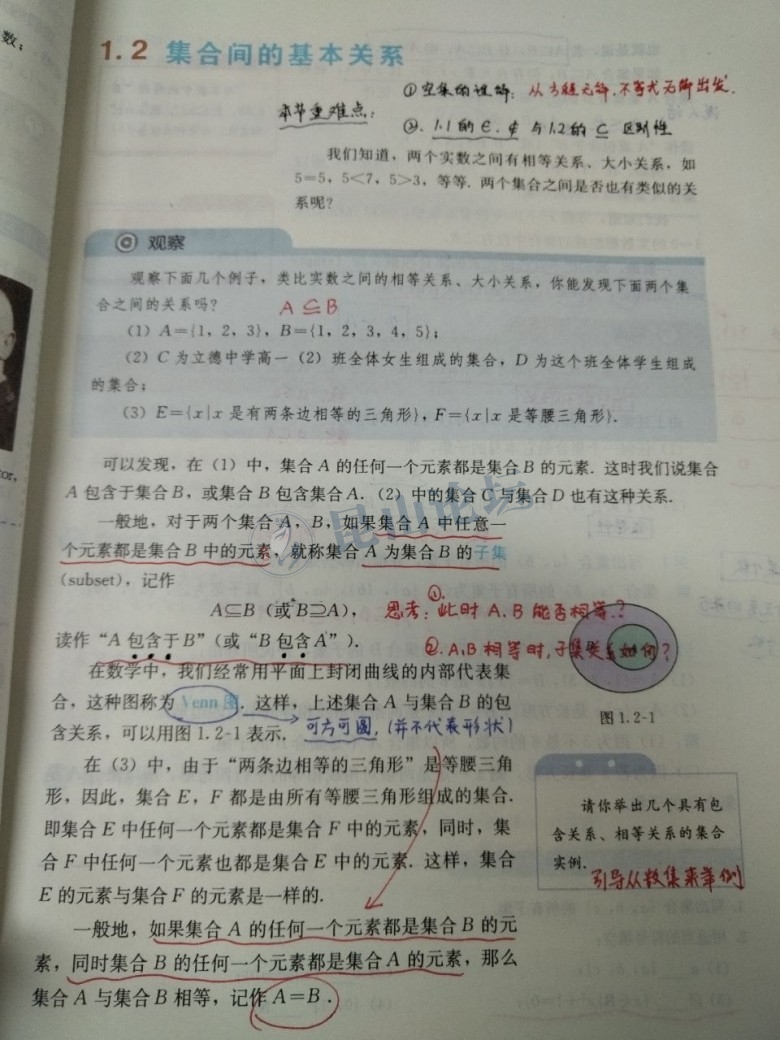 数；
1.2 集合间的基本关系
本节重难点：
①空集的理解：从方程无解，不等式无解出发.
②. 1.1的∈.∉与1.2的⊆区别性
我们知道，两个实数之间有相等关系、大小关系，如
5=5，5<7，5>3，等等. 两个集合之间是否也有类似的关
系呢？
观察
观察下面几个例子，类比实数之间的相等关系、大小关系，你能发现下面两个集
合之间的关系吗？
A⊆B
(1) A={1，2，3}，B={1，2，3，4，5}；
(2) C 为立德中学高一（2）班全体女生组成的集合，D 为这个班全体学生组成
的集合；
(3) E={x|x 是有两条边相等的三角形}，F={x|x 是等腰三角形}.
可以发现，在（1）中，集合 A 的任何一个元素都是集合 B 的元素. 这时我们说集合
A 包含于集合 B，或集合 B 包含集合 A.（2）中的集合 C 与集合 D 也有这种关系.
一般地，对于两个集合 A，B，如果集合 A 中任意一
个元素都是集合 B 中的元素，就称集合 A 为集合 B 的子集
(subset)，记作
A⊆B（或 B⊇A），
思考：①.此时A.B能否相等？
读作“A 包含于 B”（或“B 包含 A”）.
②.A,B相等时,子集关系如何？
在数学中，我们经常用平面上封闭曲线的内部代表集
合，这种图称为 Venn 图. 这样，上述集合 A 与集合 B 的包
含关系，可以用图 1.2-1 表示.
可方可圆.(并不代表形状)
图 1.2-1
在（3）中，由于“两条边相等的三角形”是等腰三角
形，因此，集合 E，F 都是由所有等腰三角形组成的集合.
即集合 E 中任何一个元素都是集合 F 中的元素，同时，集
合 F 中任何一个元素也都是集合 E 中的元素. 这样，集合
E 的元素与集合 F 的元素是一样的.
请你举出几个具有包
含关系、相等关系的集合
实例.
引导从数集来举例
一般地，如果集合 A 的任何一个元素都是集合 B 的元
素，同时集合 B 的任何一个元素都是集合 A 的元素，那么
集合 A 与集合 B 相等，记作 A=B.
昆山论坛
tor,